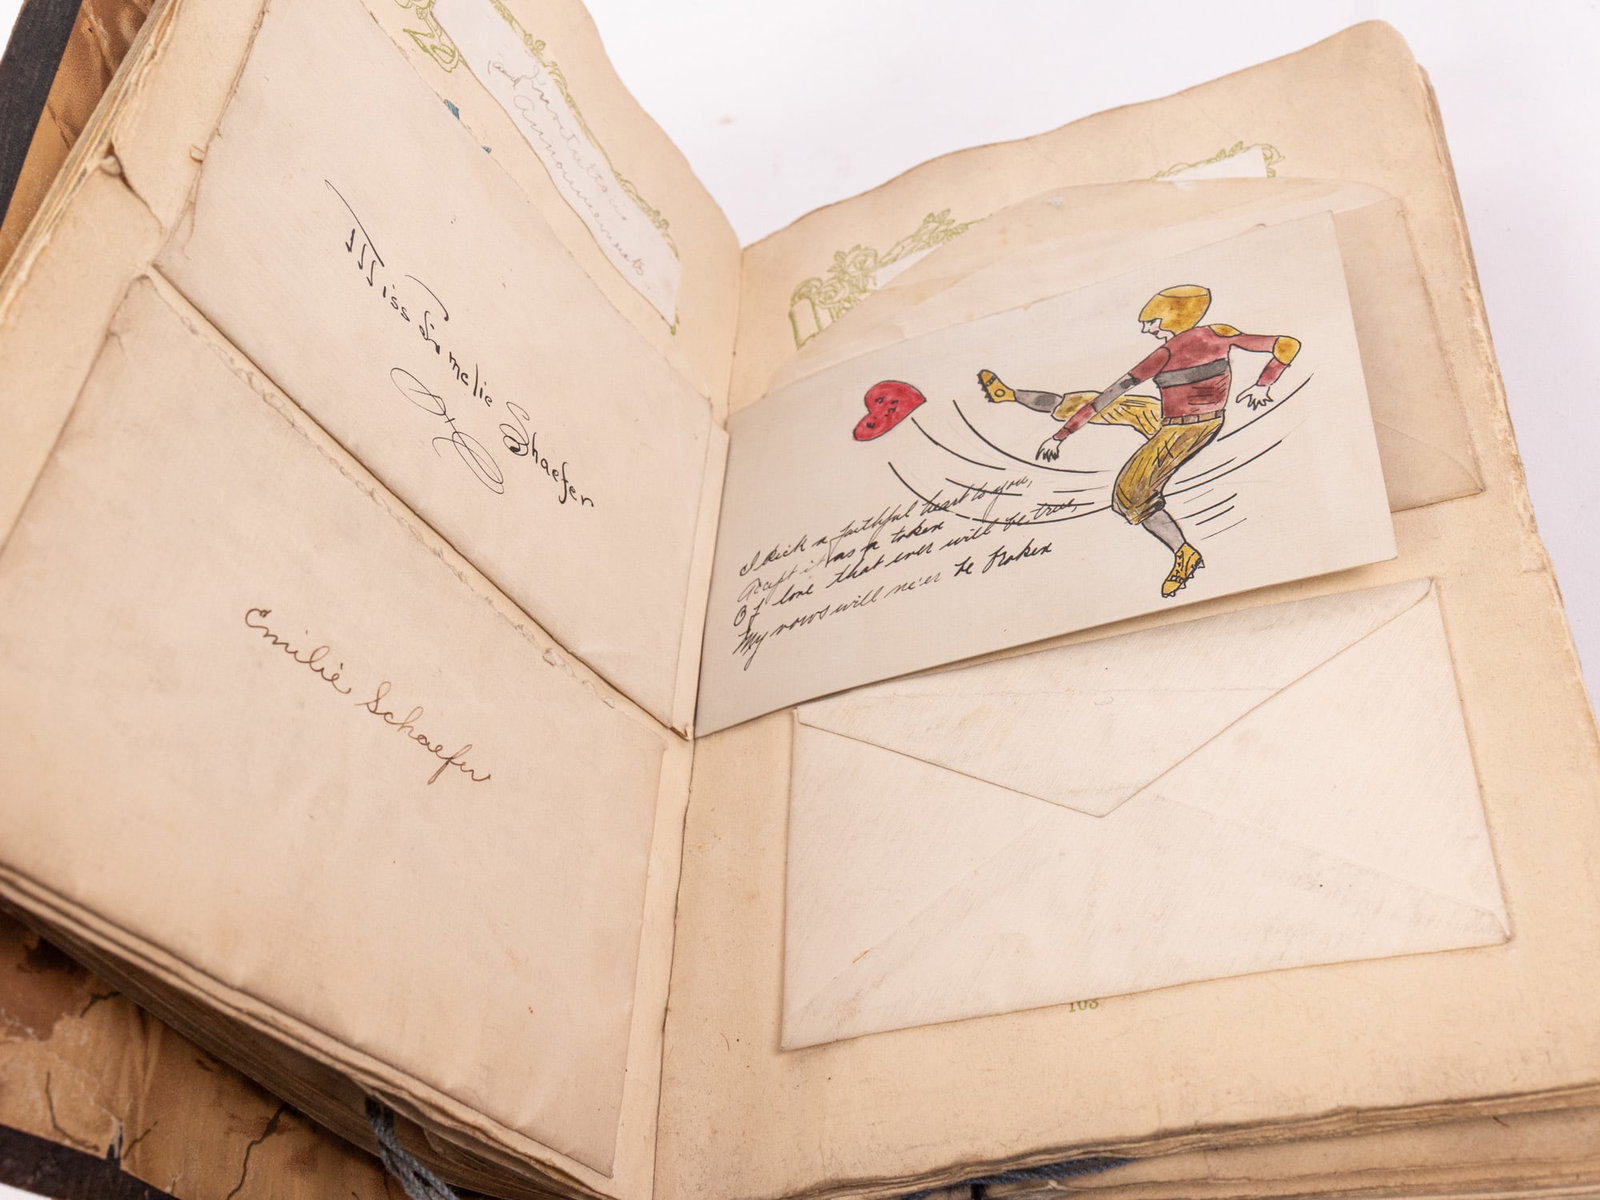 Invitations
and Announcements
Miss Emelie Shaefer
Emilie Schaefer
I kick a faithful heart to you,
Accept it as a token
Of love that ever will be true,
My vows will ne'er be broken
103